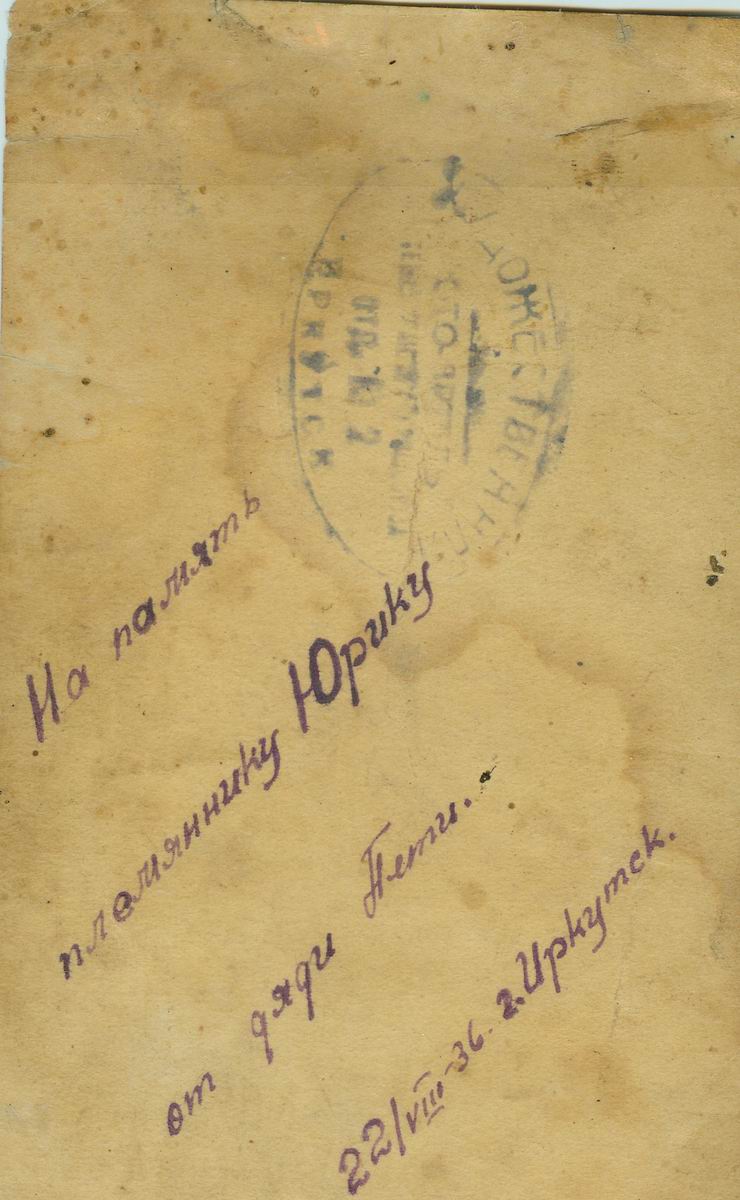 ИРКУТСК
ОТД. № 2
На память
племяннику Юрику
от дяди Пети.
22/VIII-36. г. Иркутск.